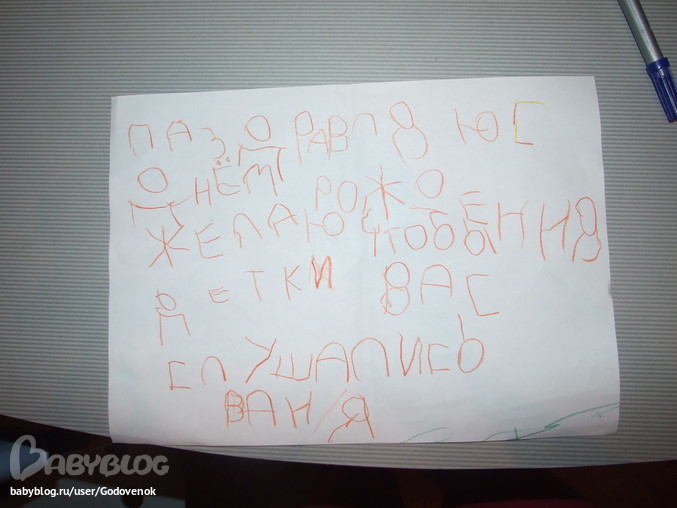 ПАЗДРАВЛЯЮ С
ДНЁМ РОЖОДЕННИЯ
ЖЕЛАЮ ЧТОБЫ
ДЕТКИ ВАС
СЛУШАЛИСЬ
ВАНЯ
BABYBLOG
babyblog.ru/user/Godovenok